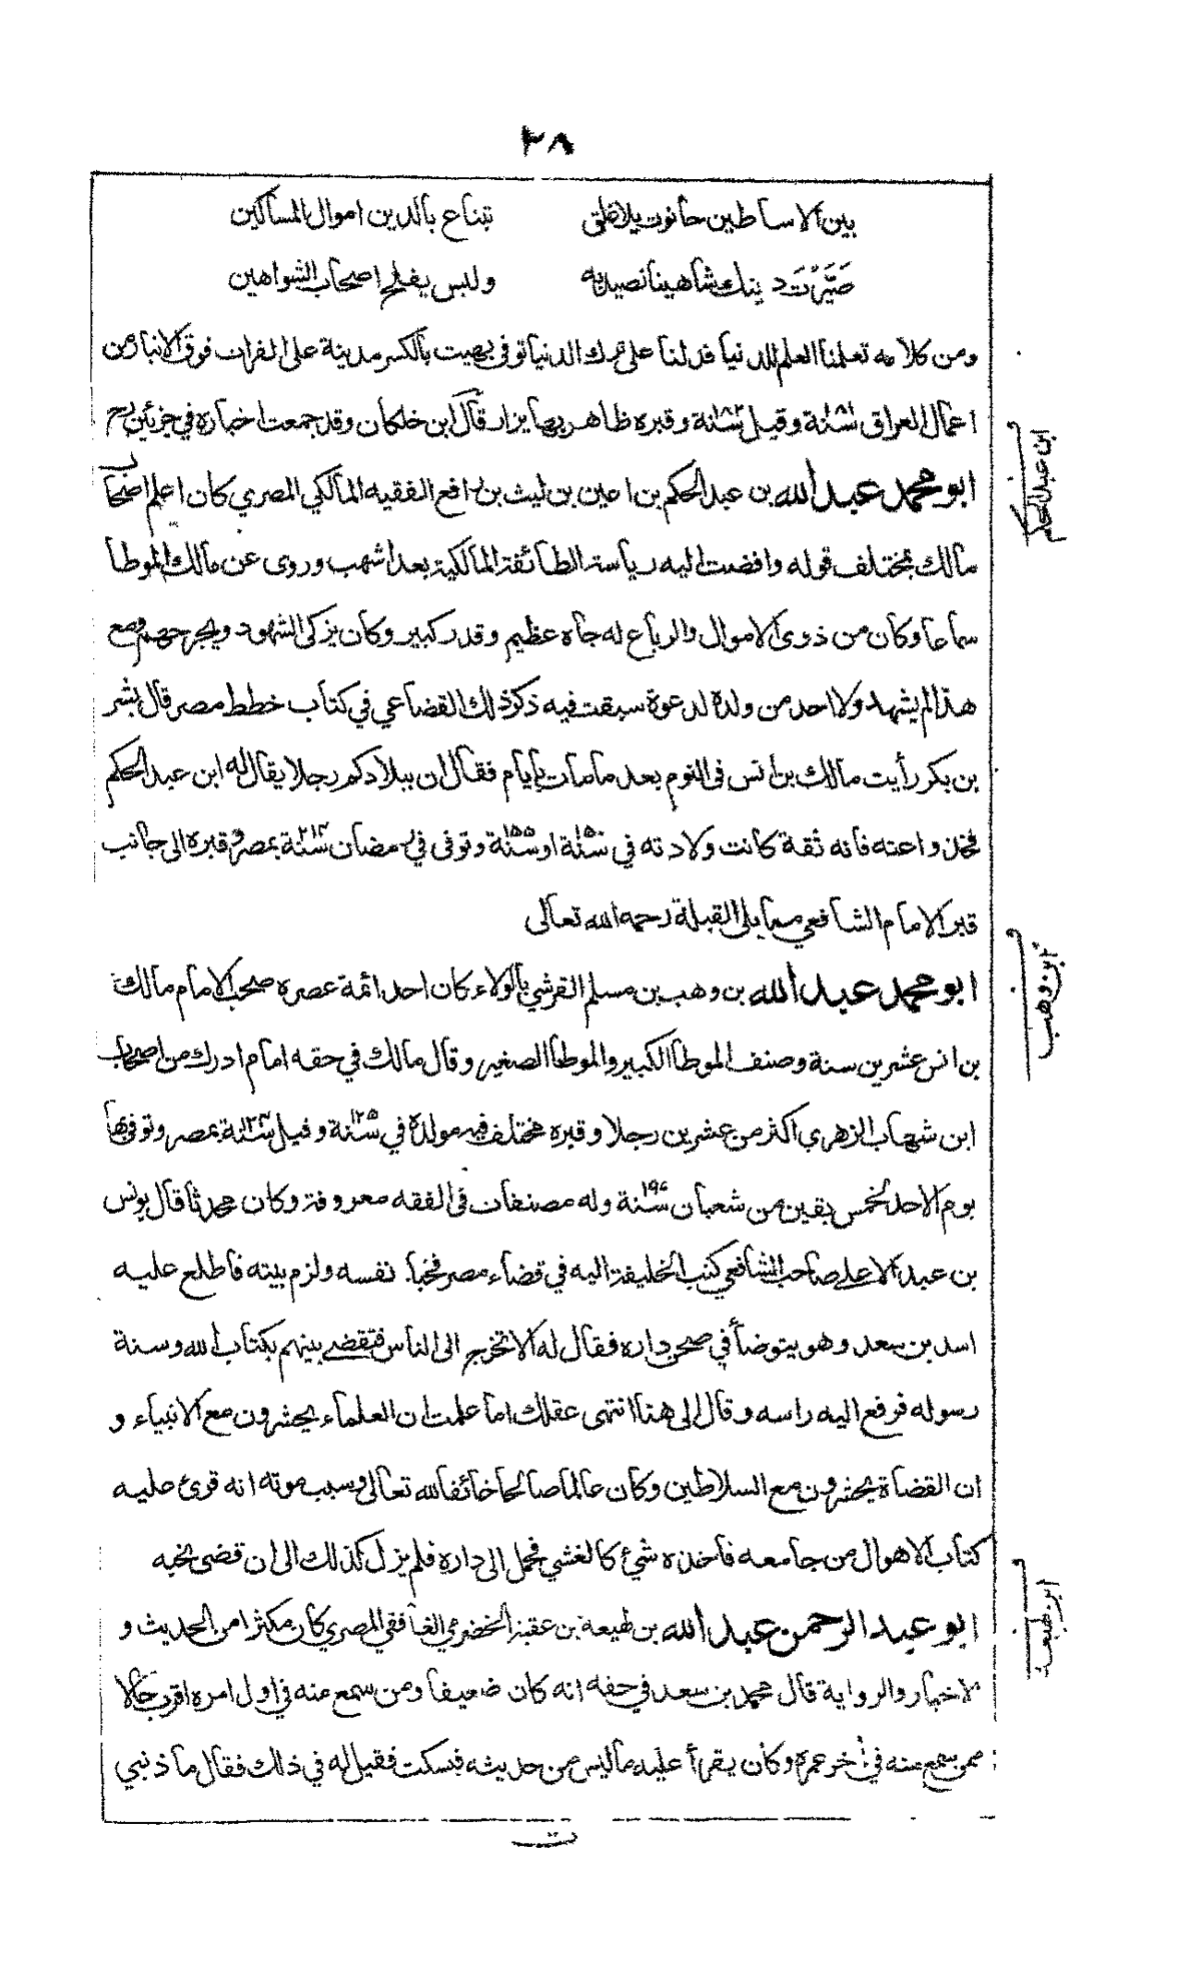 ٣٨
بين الاساطين حانوت بلا غلق تبتاع بالدين اموال المساكين
صَيَّرْتَ دينك شاهينا تصيد به وليس يفلح اصحاب الشواهين
ومن كلامه تعلمنا العلم للدنيا فدلنا على ترك الدنيا توفى بهيت بالكسر مدينة على الفرات فوق الانبار من
اعمال العراق سنة ١٨١ وقيل سنة ١٨٢ وقبره ظاهر بها يزار قال ابن خلكان وقد جمعت اخباره في جزئين رح
ابو محمد عبد الله بن عبد الحكم بن اعين بن ليث بن رافع الفقيه المالكي المصري كان اعلم اصحاب
مالك بمختلف قوله وافضت اليه رياسة الطائفة المالكية بعد اشهب وروى عن مالك الموطا
سماعا وكان من ذوى الاموال والرباع له جاه عظيم وقدر كبير وكان يزكى الشهود ويجرحهم ومع
هذا لم يشهد ولا احد من ولده لدعوة سبقت فيه ذكر ذلك القضاعي في كتاب خطط مصر قال بشر
بن بكر رأيت مالك بن انس فى النوم بعد ما مات بايام فقال ان ببلادكم رجلا يقال له ابن عبد الحكم
فخذوا عنه فانه ثقة كانت ولادته في سنة ١٥٠ او سنة ١٥٥ وتوفى في رمضان سنة ٢١٤ بمصر وقبره الى جانب
قبر الامام الشافعي مما يلي القبلة رحمه الله تعالى
ابو محمد عبد الله بن وهب بن مسلم القرشي بالولاء كان احد ائمة عصره صحب الامام مالك
بن انس عشرين سنة وصنف الموطا الكبير والموطا الصغير وقال مالك في حقه امام ادرك من اصحاب
ابن شهاب الزهري اكثر من عشرين رجلا وقبره مختلف فيه مولده في سنة ١٢٥ وقيل سنة ١٢٤ بمصر وتوفى بها
يوم الاحد لخمس بقين من شعبان سنة ١٩٤ وله مصنفات فى الفقه معروفة وكان محدثا قال يونس
بن عبد الاعلى صاحب الشافعي كتب الخليفة اليه في قضاء مصر فخبا نفسه ولزم بيته فاطلع عليه
اسد بن سعد وهو يتوضأ في صحن داره فقال له الا تخرج الى الناس فتقضى بينهم بكتاب الله وسنة
رسوله فرفع اليه راسه وقال الى هنا انتهى عقلك اما علمت ان العلماء يحشرون مع الانبياء و
ان القضاة يحشرون مع السلاطين وكان عالما صالحا خائفا لله تعالى وسبب موته انه قرئ عليه
كتاب الاهوال من جامعه فاخذه شئ كالغشي فحمل الى داره فلم يزل كذلك الى ان قضى نحبه
ابو عبد الرحمن عبد الله بن لهيعة بن عقبة الحضرمي الغافقي المصري كان مكثرا من الحديث و
الاخبار والرواية قال محمد بن سعد في حقه انه كان ضعيفا ومن سمع منه في اول امره اقرب حالا
ممن سمع منه في أخر عمره وكان يقرأ عليه ما ليس من حديثه فيسكت فقيل له في ذلك فقال ما ذنبي
ابن عبد الحكم
ابن وهب
ابن لهيعة